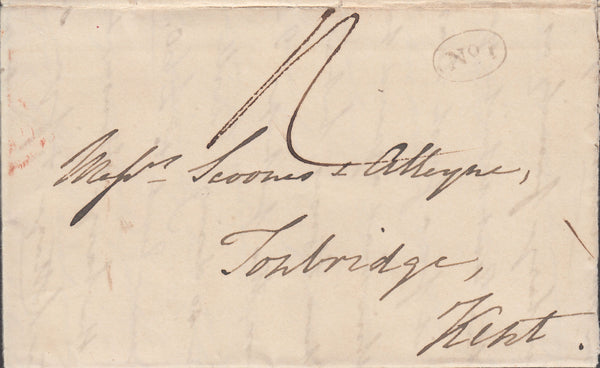 No 1
Messrs Scoones & Alleyne,
Tonbridge,
Kent.